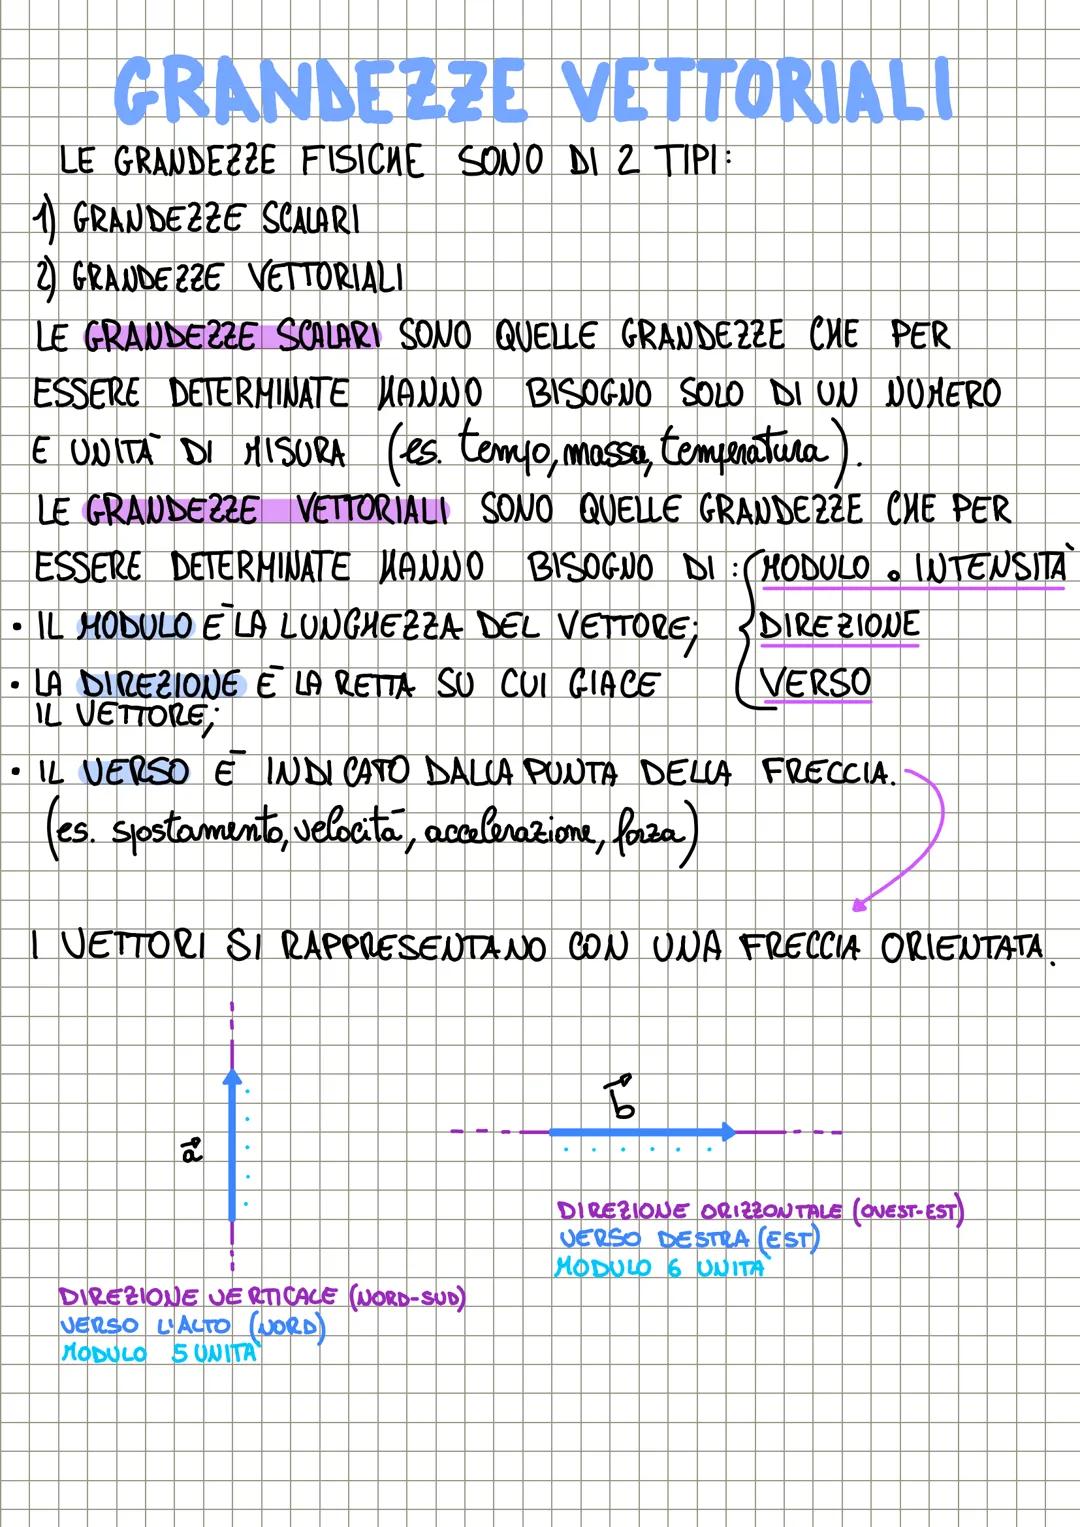 GRANDEZZE VETTORIALI
LE GRANDEZZE FISICHE SONO DI 2 TIPI:
1) GRANDEZZE SCALARI
2) GRANDEZZE VETTORIALI
LE GRANDEZZE SCALARI SONO QUELLE GRANDEZZE CHE PER
ESSERE DETERMINATE HANNO BISOGNO SOLO DI UN NUMERO
E UNITÀ DI MISURA (es. tempo, massa, temperatura).
LE GRANDEZZE VETTORIALI SONO QUELLE GRANDEZZE CHE PER
ESSERE DETERMINATE HANNO BISOGNO DI: MODULO o INTENSITÀ
DIREZIONE
VERSO
• IL MODULO È LA LUNGHEZZA DEL VETTORE;
• LA DIREZIONE È LA RETTA SU CUI GIACE
IL VETTORE;
• IL VERSO È INDICATO DALLA PUNTA DELLA FRECCIA.
(es. spostamento, velocità, accelerazione, forza)
I VETTORI SI RAPPRESENTANO CON UNA FRECCIA ORIENTATA.
a⃗
b⃗
DIREZIONE VERTICALE (NORD-SUD)
VERSO L'ALTO (NORD)
MODULO 5 UNITÀ
DIREZIONE ORIZZONTALE (OVEST-EST)
VERSO DESTRA (EST)
MODULO 6 UNITÀ